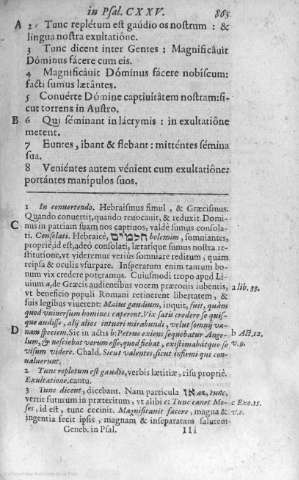 in Psal. CXXV. 865
A 2 Tunc replétum est gaudio os nostrum : &
lingua nostra exultatióne.
3 Tunc dicent inter Gentes : Magnificávit
Dóminus fácere cum eis.
4 Magnificávit Dóminus fácere nobiscum:
facti sumus lætántes.
5 Convérte Dómine captiuitátem nostram: si-
cut torrens in Austro.
B 6 Qui séminant in lácrymis : in exultatióne
metent.
7 Euntes, ibant & flebant : mitténtes sémina
sua.
8 Veniéntes autem vénient cum exultatióne:
portántes manipulos suos.
1 In conuertendo. Hebraismus simul, & Græcismus.
Quando conuertit, quando reuocauit, & reduxit Domi-
nus in patriam suam nos captiuos, valdè sumus consola-
C ti. Consolati. Hebraicè, חלמים holemim, somniantes,
propriè, id est, adeò consolati, lætarique sumus nostra re-
stitutione, vt videremur vertùs somniare reditum, quam
reipsa & oculis vsurpare. Insperatum enim tantum bo-
num vix credere poteramus. Cuiusmodi tropo apud Li-
uium a, de Græcis audientibus vocem præconis iubentis, a lib. 33.
vt beneficio populi Romani retinerent libertatem, &
suis legibus viuerent: Maius gaudium, inquit, fuit, quàm
quod vniuersum homines caperent. Vix satis credere se quis-
que audisse, alij alios intueri mirabundi, velut somnij va-
nam speciem. Sic in actis b: Petrus exiens sequebatur Ange- b Act. 12.
D lum, & nesciebat verum esse, quod fiebat, existimabatque se v. 9.
visum videre. Chald. Sicut valentes, sicut infirmi qui con-
valuerunt.
2 Tunc repletum est gaudio, verbis lætitiæ, risu propriè.
Exultatione, cantu.
3 Tunc dicent, dicebant. Nam particula אז az, tunc,
vertit futurum in præteritum, vt alibi c: Tunc canet Mo- c Exo. 15.
ses, id est, tunc cecinit. Magnificauit facere, magna & v. 1.
ingentia fecit ipsis, magnam & insperatam salutem
Geneb. in Psal. Iii